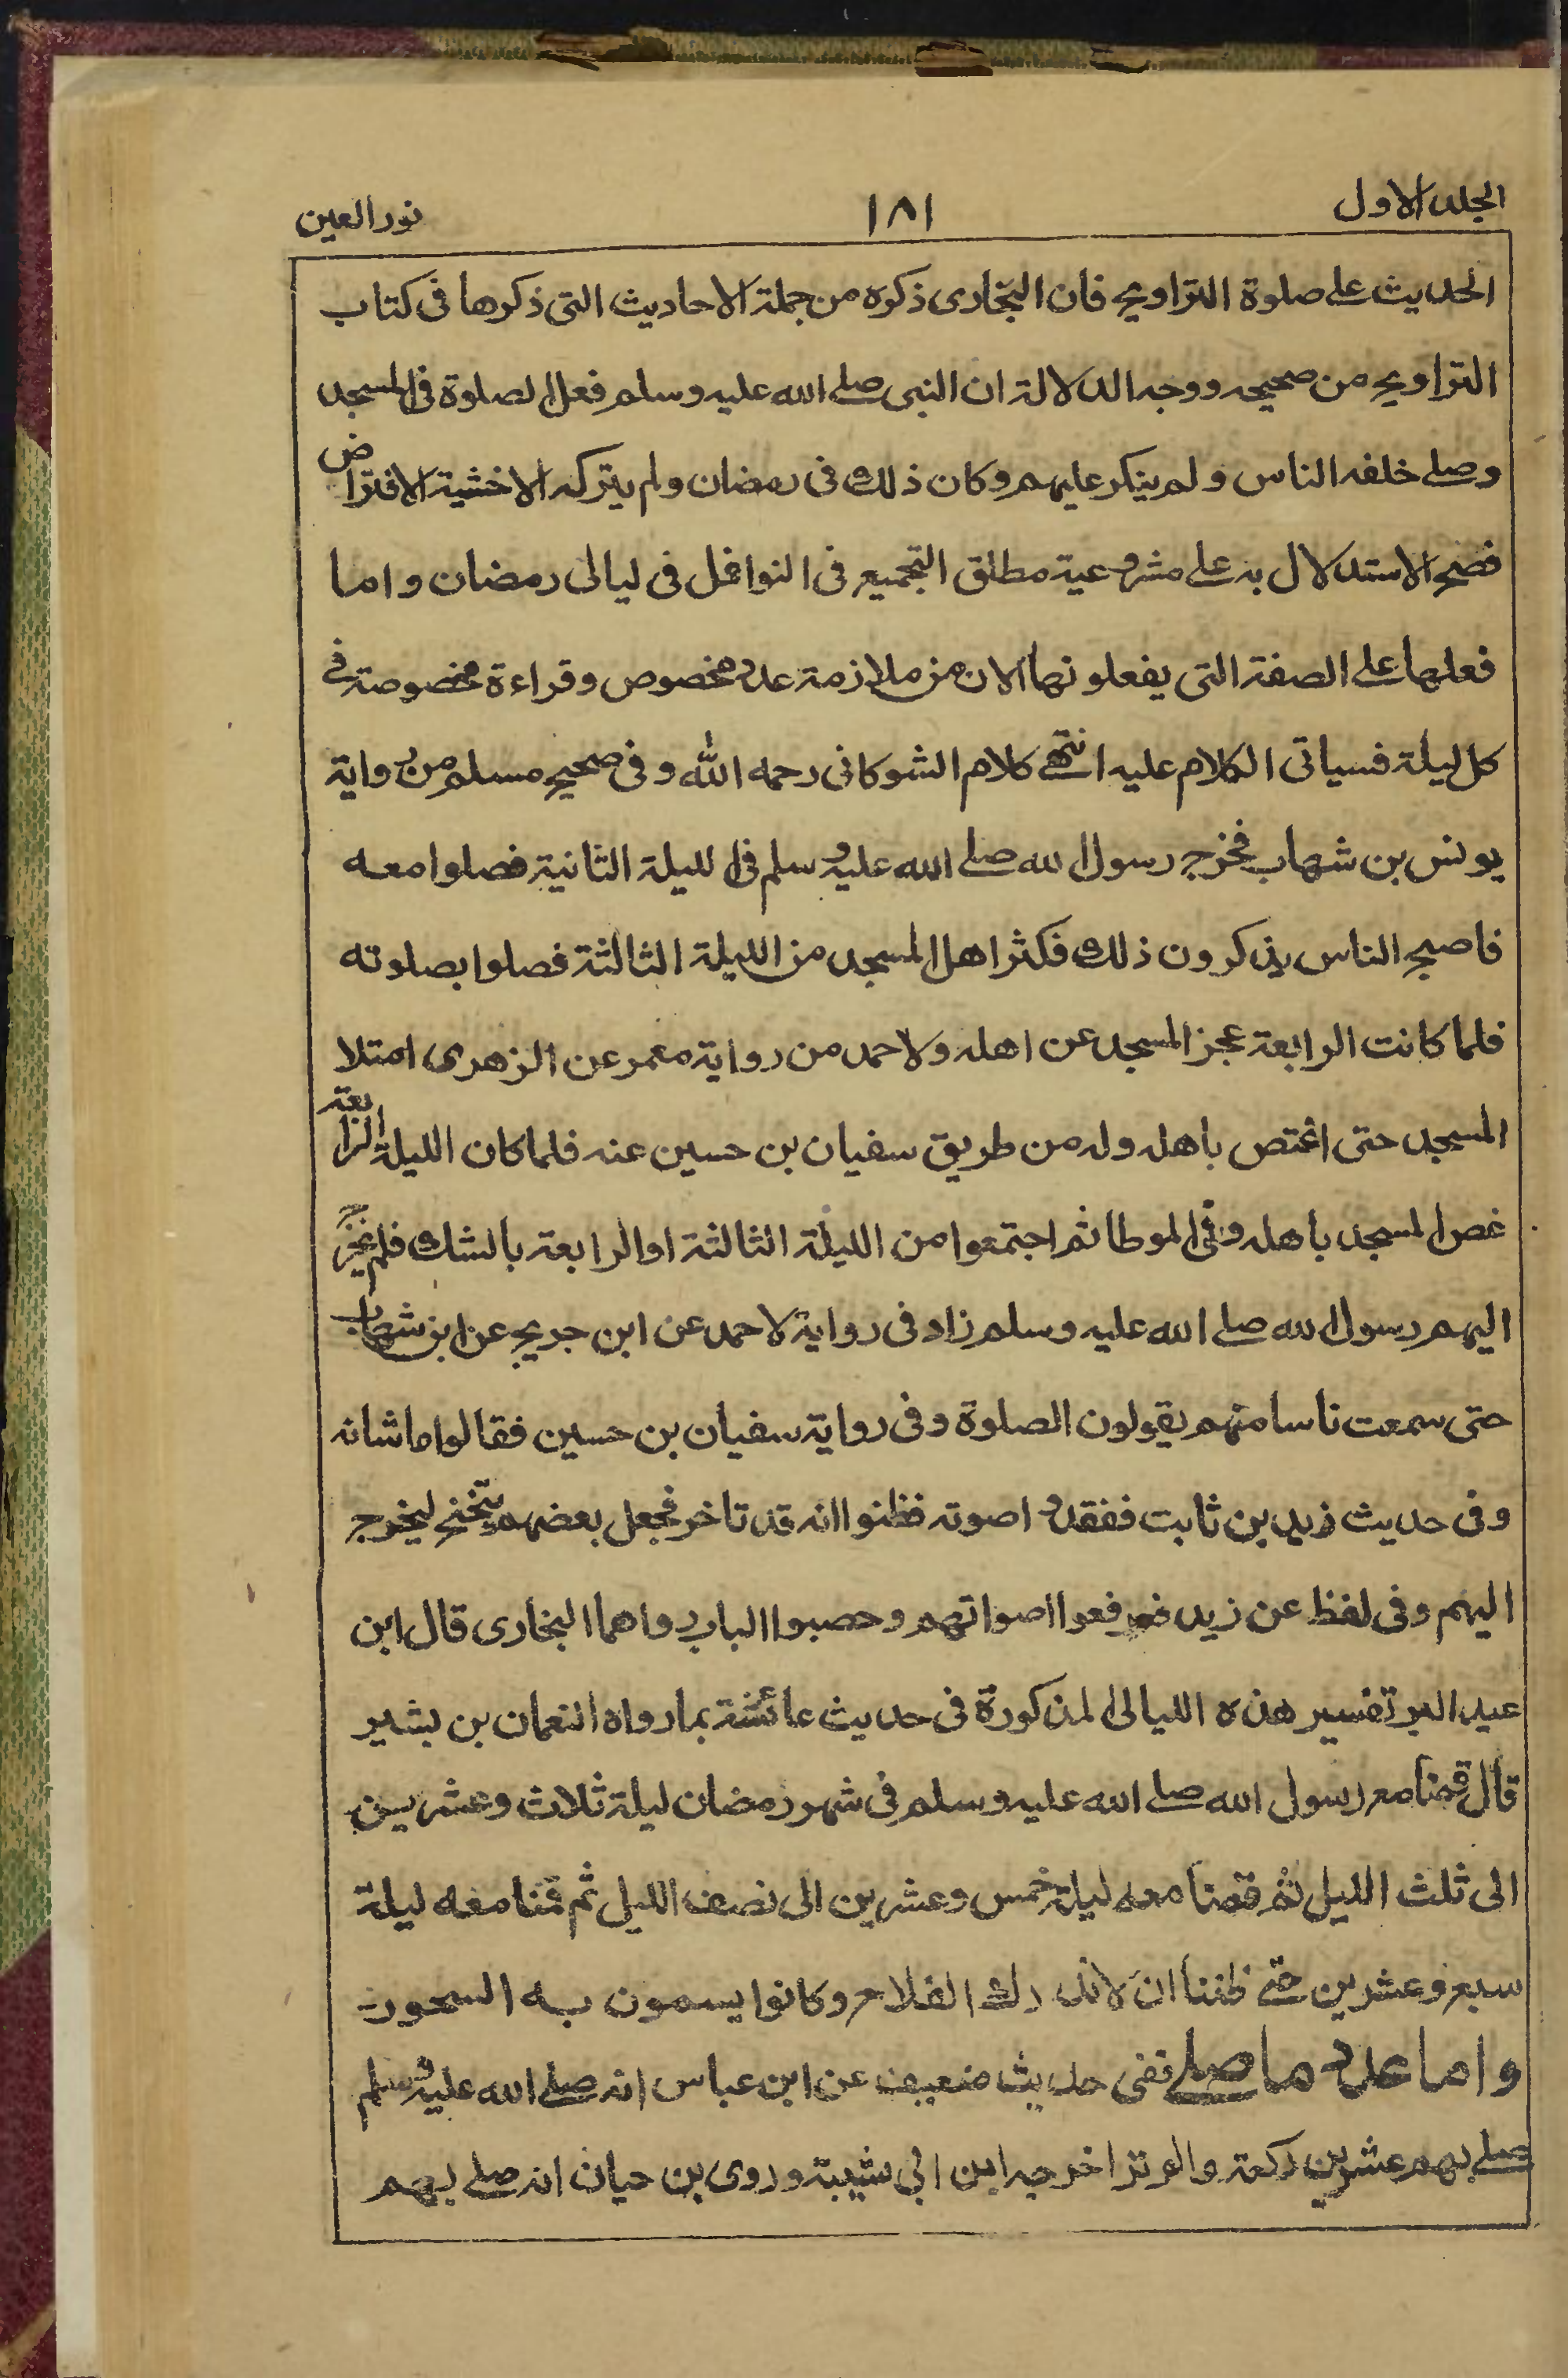 الجلد الاول ١٨١ نور العين
الحديث على صلوة التراويح فان البخارى ذكره من جملة الاحاديث التى ذكرها فى كتاب
التراويح من صحيحه ووجه الدلالة ان النبى صلے الله عليه وسلم فعل الصلوة فى المسجد
وصلے خلفه الناس ولم ينكر عليهم وكان ذلك فى رمضان ولم يتركه الا خشية الافتراض
فصح الاستدلال به على مشروعية مطلق التجميع فى النوافل فى ليالى رمضان واما
فعلها على الصفة التى يفعلونها الان من ملازمة عدد مخصوص وقراءة مخصوصة فى
كل ليلة فسياتى الكلام عليه انتهے كلام الشوكانى رحمه الله وفى صحيح مسلم من رواية
يونس بن شهاب فخرج رسول الله صلے الله عليه وسلم فى الليلة الثانية فصلوا معه
فاصبح الناس يذكرون ذلك فكثر اهل المسجد من الليلة الثالثة فصلوا بصلوته
فلما كانت الرابعة عجز المسجد عن اهله ولاحمد من رواية معمر عن الزهرى امتلا
المسجد حتى اغتص باهله وله من طريق سفيان بن حسين عنه فلما كان الليلة الرابعة
غص المسجد باهله وفى الموطا ثم اجتمعوا من الليلة الثالثة او الرابعة بالشك فلم يخرج
اليهم رسول الله صلے الله عليه وسلم زاد فى رواية لاحمد عن ابن جريج عن ابن شهاب
حتى سمعت ناسا منهم يقولون الصلوة وفى رواية سفيان بن حسين فقالوا ما شانه
وفى حديث زيد بن ثابت ففقدوا صوته فظنوا انه قد تاخر فجعل بعضهم يتنحنح ليخرج
اليهم وفى لفظ عن زيد فرفعوا اصواتهم وحصبوا الباب رواهما البخارى قال ابن
عبد البر تفسير هذه الليالى المذكورة فى حديث عائشة بما رواه النعمان بن بشير
قال قمنا مع رسول الله صلے الله عليه وسلم فى شهر رمضان ليلة ثلاث وعشرين
الى ثلث الليل ثم قمنا معه ليلة خمس وعشرين الى نصف الليل ثم قمنا معه ليلة
سبع وعشرين حتے ظننا ان لا ندرك الفلاح وكانوا يسمون به السحور
واما عدد ما صلے ففى حديث ضعيف عن ابن عباس انه صلے الله عليه وسلم
صلے بهم عشرين ركعة والوتر اخرجه ابن ابى شيبة وروى بن حيان انه صلے بهم